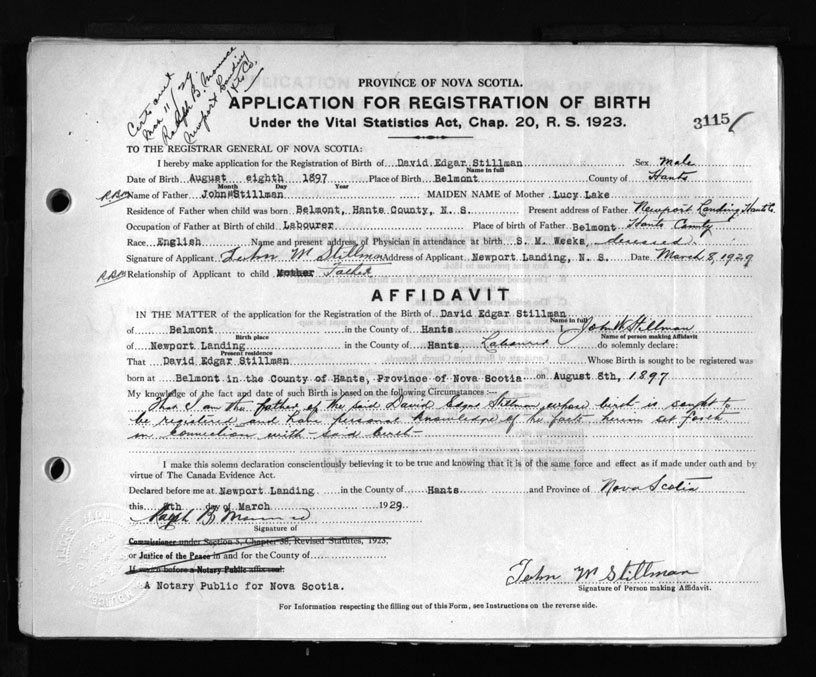 Certs and
Nov 11/29
Ralph B.
Newport Landing
Hts Co.
PROVINCE OF NOVA SCOTIA.
APPLICATION FOR REGISTRATION OF BIRTH
Under the Vital Statistics Act, Chap. 20, R. S. 1923.
3115
TO THE REGISTRAR GENERAL OF NOVA SCOTIA:
I hereby make application for the Registration of Birth of David Edgar Stillman Sex Male
Name in full
Date of Birth August eighth 1897 Place of Birth Belmont County of Hants
Month Day Year
R.B.M. Name of Father John W Stillman MAIDEN NAME of Mother Lucy Lake
Residence of Father when child was born Belmont, Hants County, N. S. Present address of Father Newport Landing Hants Co.
Occupation of Father at Birth of child Labourer Place of birth of Father Belmont Hants County
Race English Name and present address of Physician in attendance at birth S. M. Weeks, deceased
Signature of Applicant John W Stillman Address of Applicant Newport Landing, N. S. Date March 8, 1929
R.B.M. Relationship of Applicant to child Mother Father
AFFIDAVIT
IN THE MATTER of the application for the Registration of the Birth of David Edgar Stillman
Name in full
of Belmont in the County of Hants I, John W Stillman
Birth place Name of person making Affidavit
of Newport Landing in the County of Hants do solemnly declare:
Present residence
That David Edgar Stillman Whose Birth is sought to be registered was
born at Belmont in the County of Hants, Province of Nova Scotia on August 8th, 1897
My knowledge of the fact and date of such Birth is based on the following Circumstances :—
That I am the father of the said David Edgar Stillman whose birth is sought to
be registered and have personal knowledge of the facts herein set forth
in connection with said birth
I make this solemn declaration conscientiously believing it to be true and knowing that it is of the same force and effect as if made under oath and by
virtue of The Canada Evidence Act.
Declared before me at Newport Landing in the County of Hants and Province of Nova Scotia
this 8th day of March 1929
Ralph B
Signature of
Commissioner under Section 5, Chapter 38, Revised Statutes, 1923,
or Justice of the Peace in and for the County of
If sworn before a Notary Public affix seal
A Notary Public for Nova Scotia.
John W Stillman
Signature of Person making Affidavit.
For Information respecting the filling out of this Form, see Instructions on the reverse side.